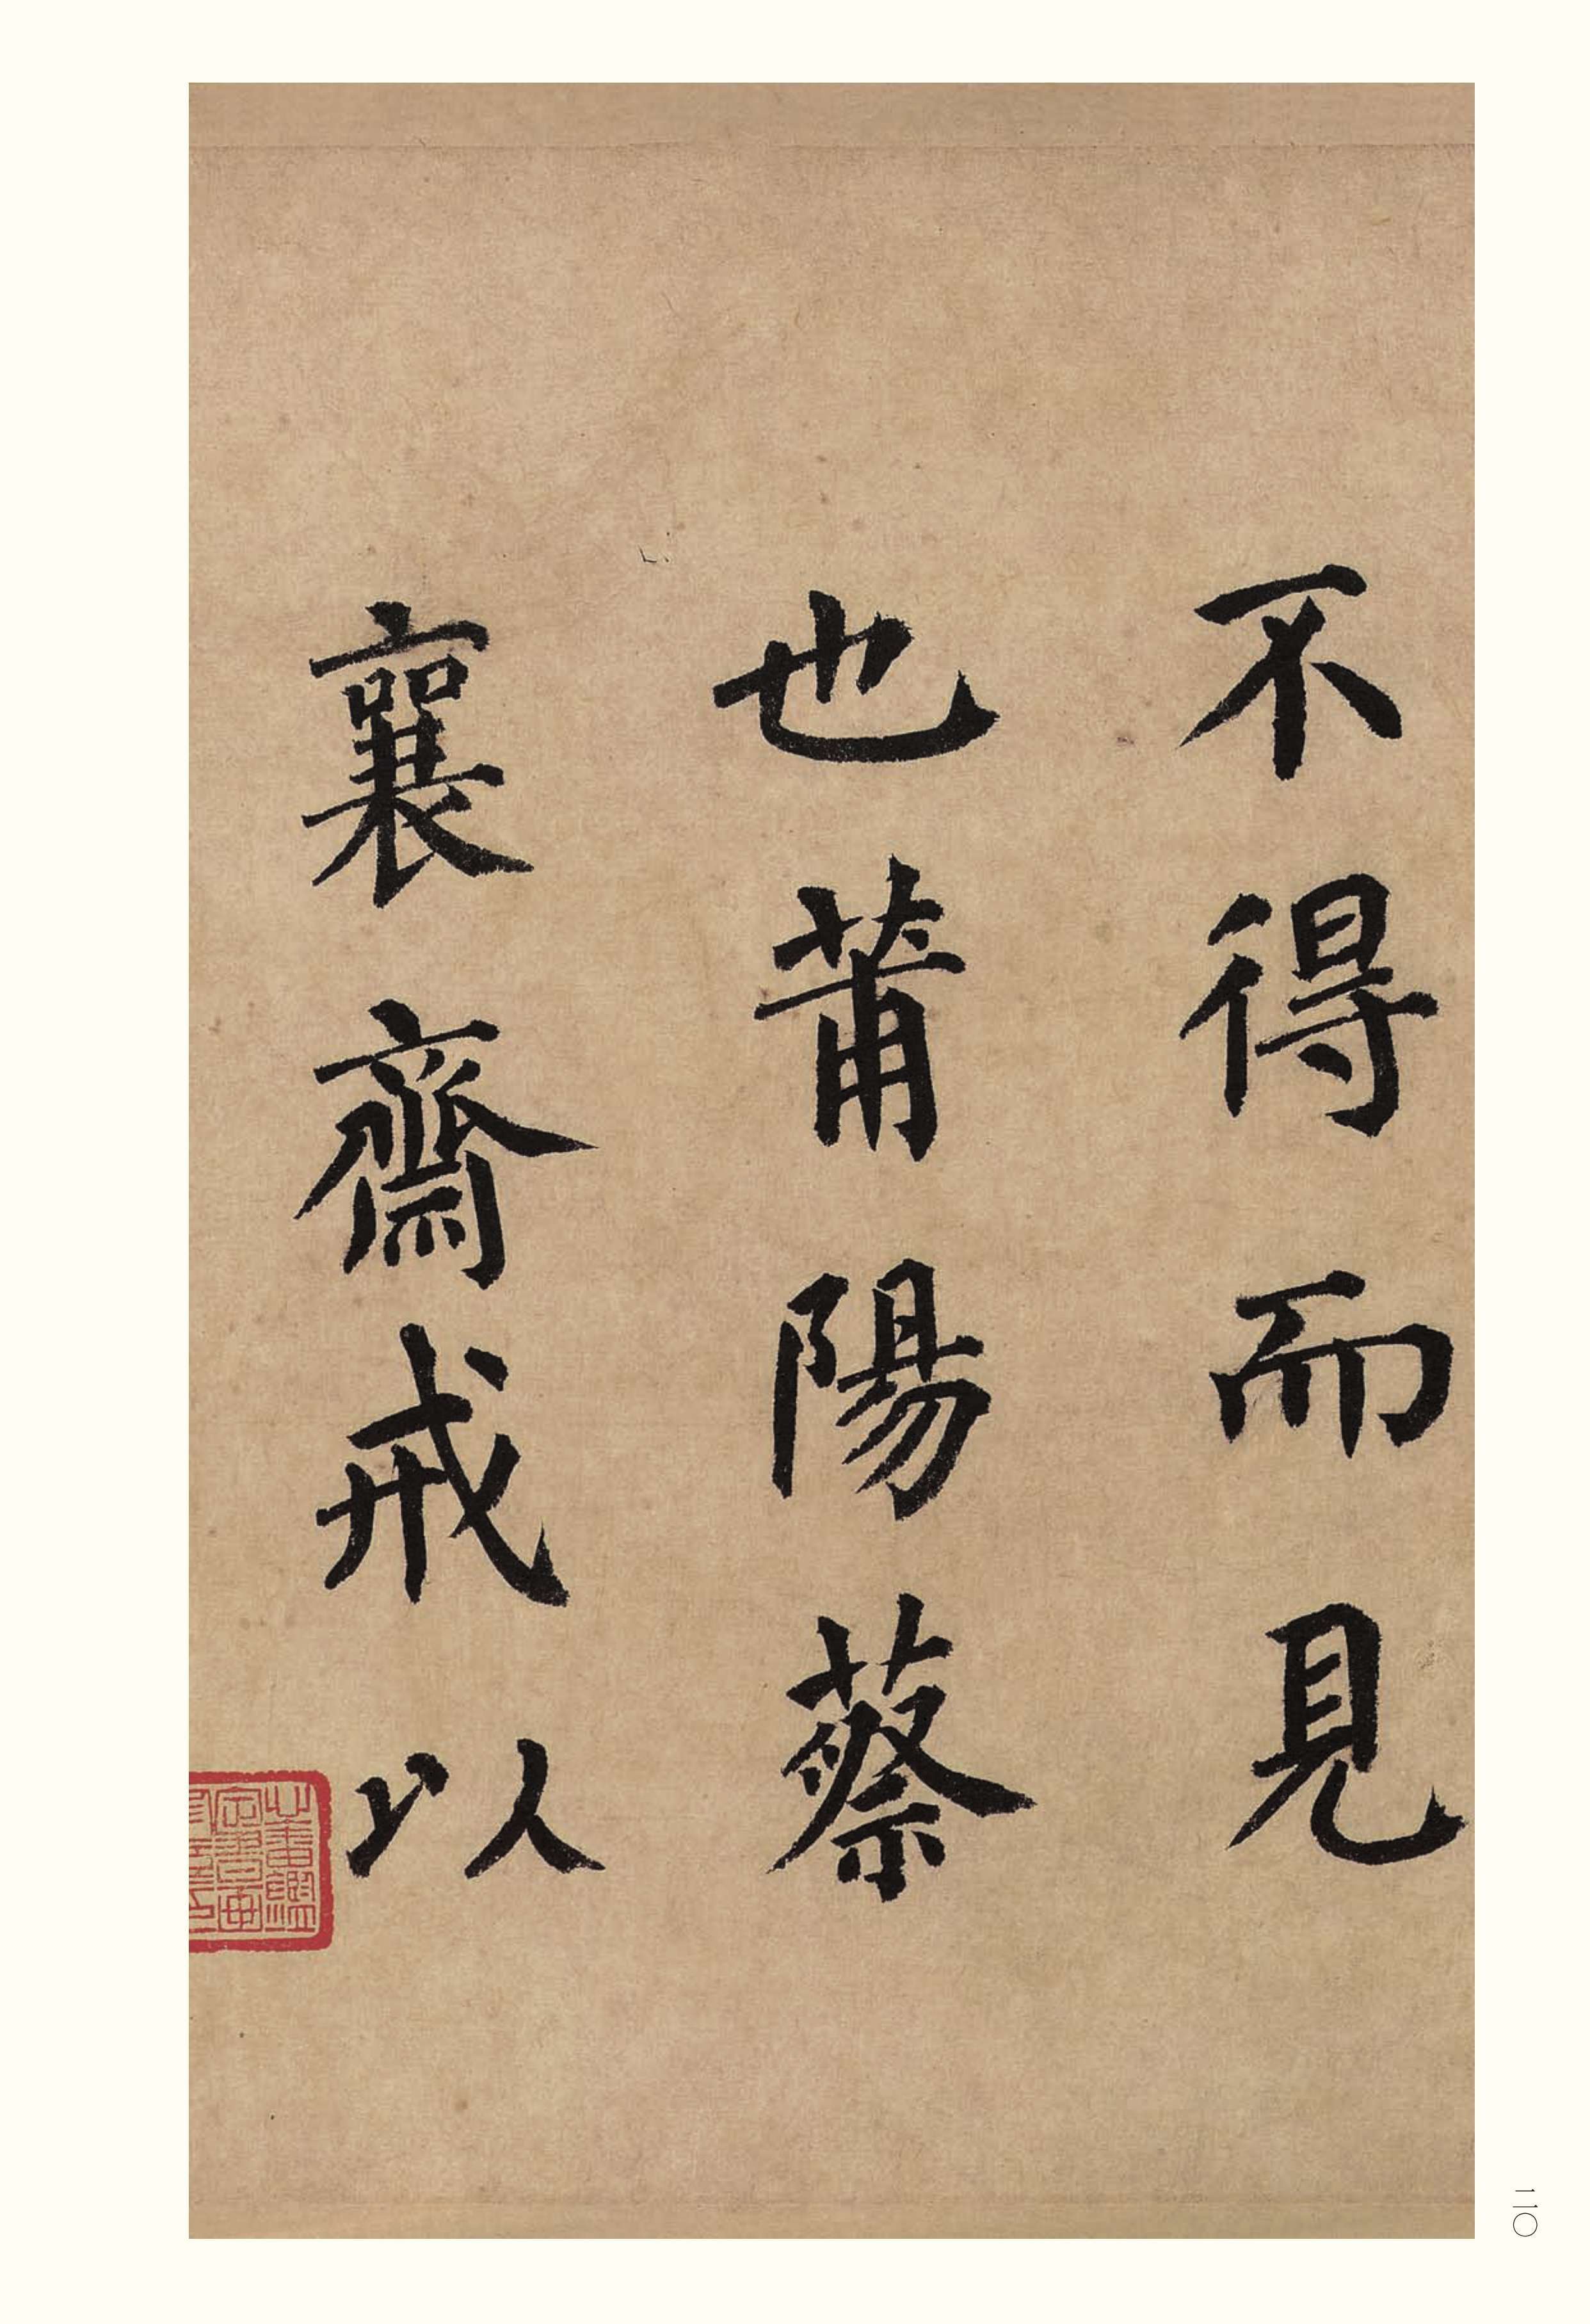 不得而見
也莆陽蔡
襄齋戒以
二〇